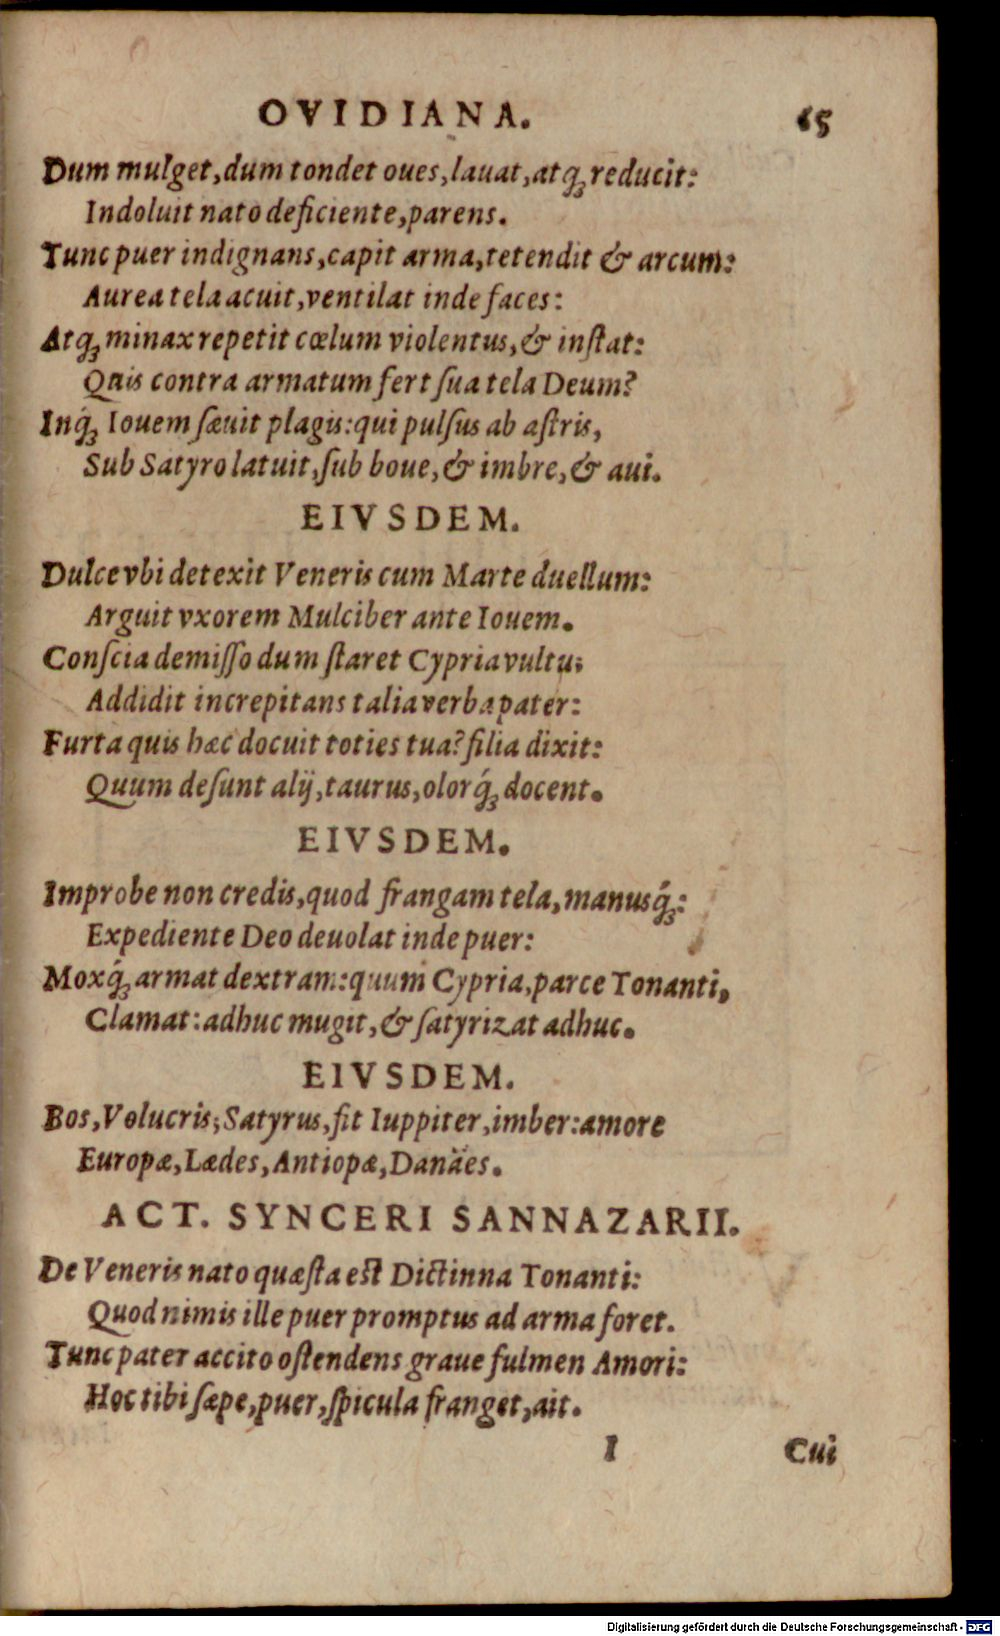 OVIDIANA. 65
Dum mulget, dum tondet oues, lauat, atq́ꝫ reducit:
Indoluit nato deficiente, parens.
Tunc puer indignans, capit arma, tetendit & arcum:
Aurea tela acuit, ventilat inde faces:
Atqꝫ minax repetit cœlum violentus, & inſtat:
Quis contra armatum fert ſua tela Deum?
Inq́ꝫ Iouem ſæuit plagis: qui pulſus ab aſtris,
Sub Satyro latuit, ſub boue, & imbre, & aui.
EIVSDEM.
Dulce vbi detexit Veneris cum Marte duellum:
Arguit vxorem Mulciber ante Iouem.
Conſcia demiſſo dum ſtaret Cypria vultu;
Addidit increpitans talia verba pater:
Furta quis hæc docuit toties tua? filia dixit:
Quum deſunt alij, taurus, olorq́ꝫ docent.
EIVSDEM.
Improbe non credis, quod frangam tela, manusq́ꝫ:
Expediente Deo deuolat inde puer:
Moxq́ꝫ armat dextram: quum Cypria, parce Tonanti,
Clamat: adhuc mugit, & ſatyrizat adhuc.
EIVSDEM.
Bos, Volucris; Satyrus, fit Iuppiter, imber: amore
Europæ, Lædes, Antiopæ, Danäes.
ACT. SYNCERI SANNAZARII.
De Veneris nato quæſta eſt Dictinna Tonanti:
Quod nimis ille puer promptus ad arma foret.
Tunc pater accito oſtendens graue fulmen Amori:
Hoc tibi ſæpe, puer, ſpicula franget, ait.
I Cui
Digitalisierung gefördert durch die Deutsche Forschungsgemeinschaft - DFG